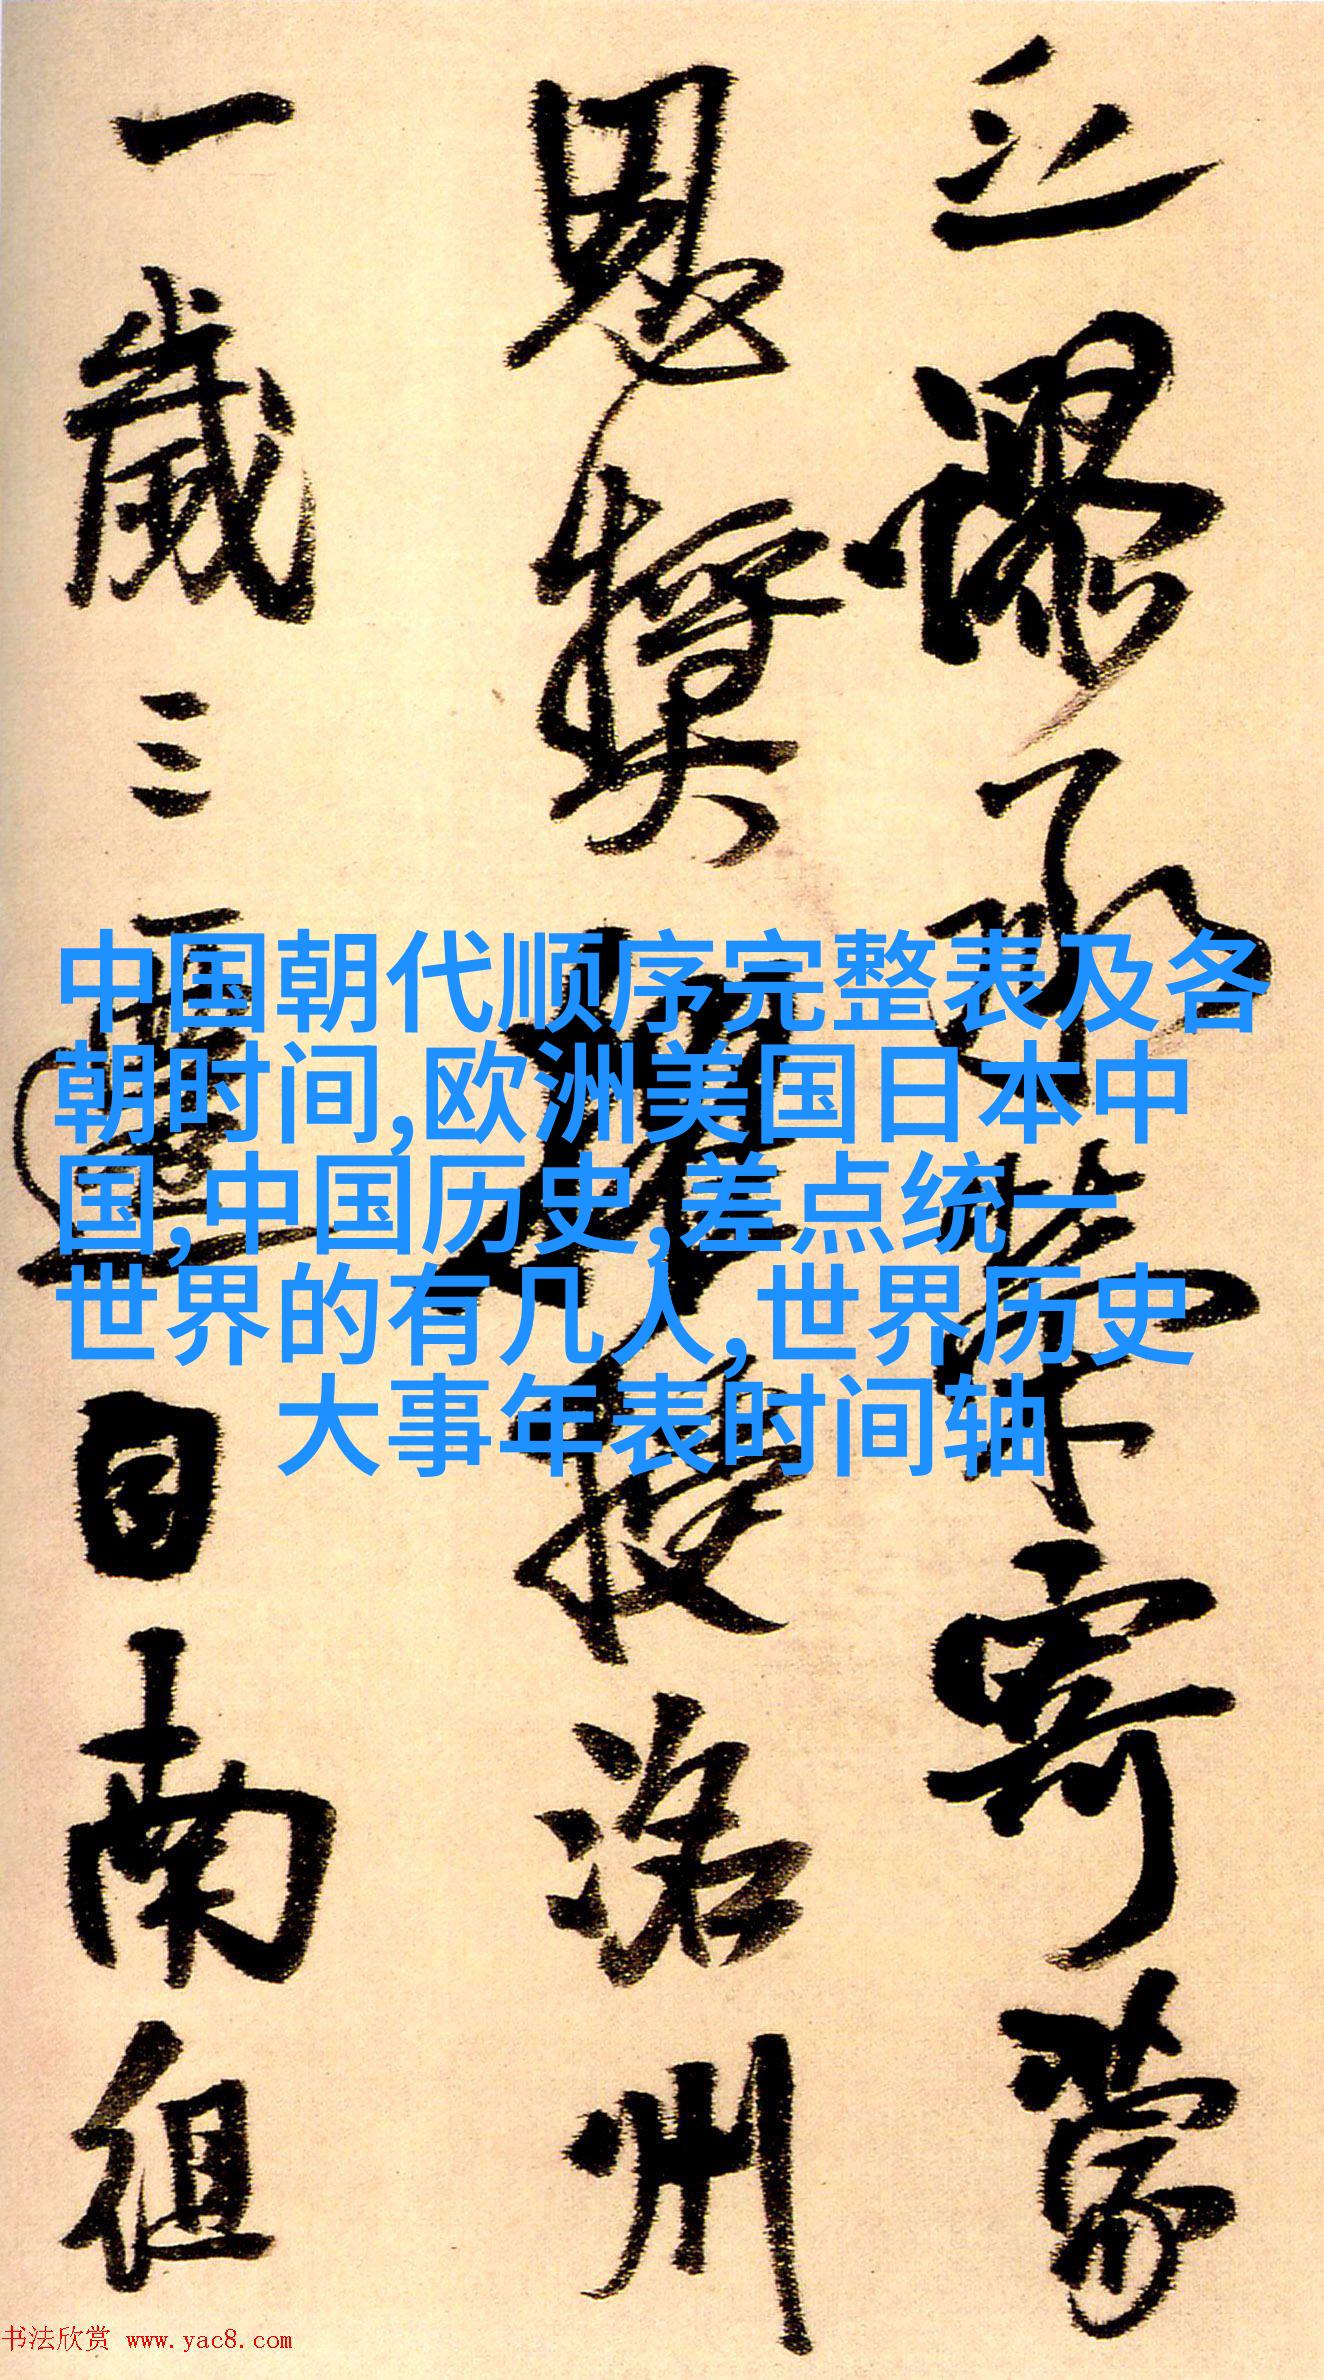 之谬承荣寄蒙
恩奨擢授洺州
一歲三遷日南徂
中国朝代顺序完整表及各
朝时间,欧洲美国日本中
国,中国历史,差点统一
世界的有几人,世界历史
大事年表时间轴
书法欣赏 www.yac8.com